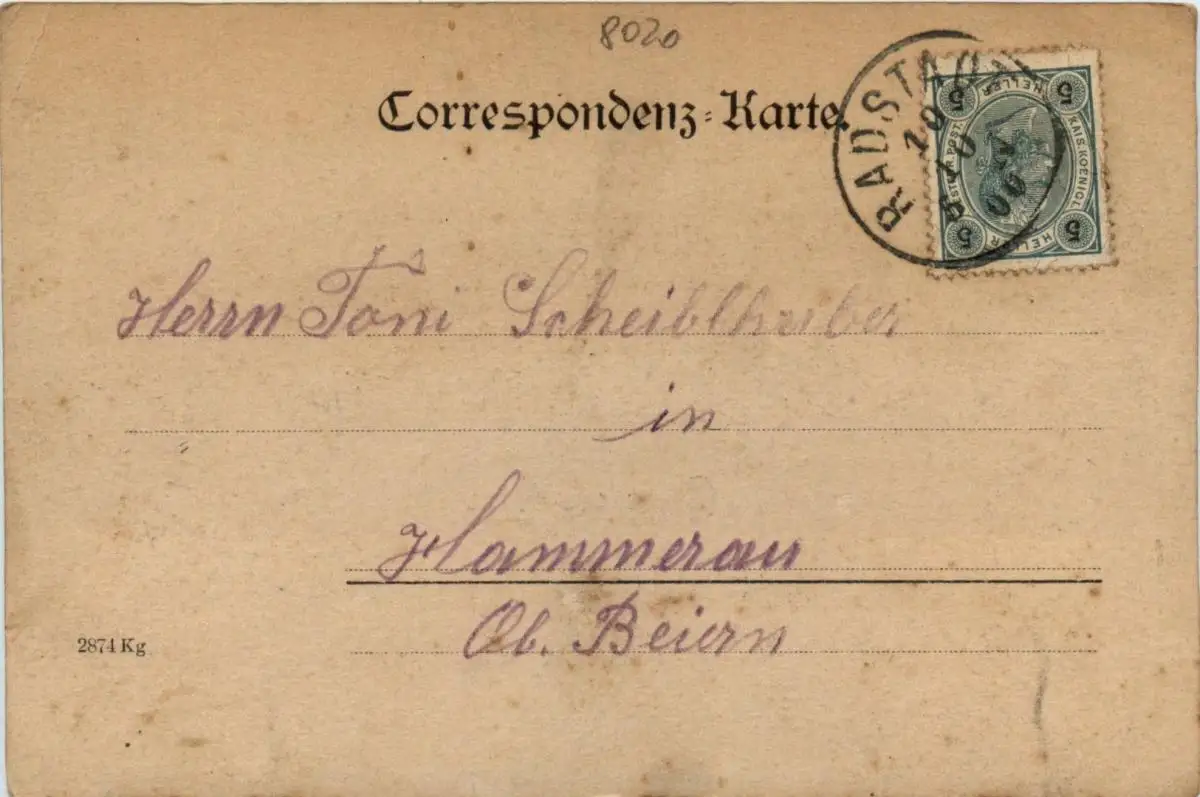 8020
Correspondenz-Karte.
RADSTADT
10
5 10
00
5 HELLER 5
KAIS. KOENIGL.
POST.
5 HELLER 5
Herrn Toni Scheiblhuber
in
Hammerau
Ob. Beiern
2874 Kg